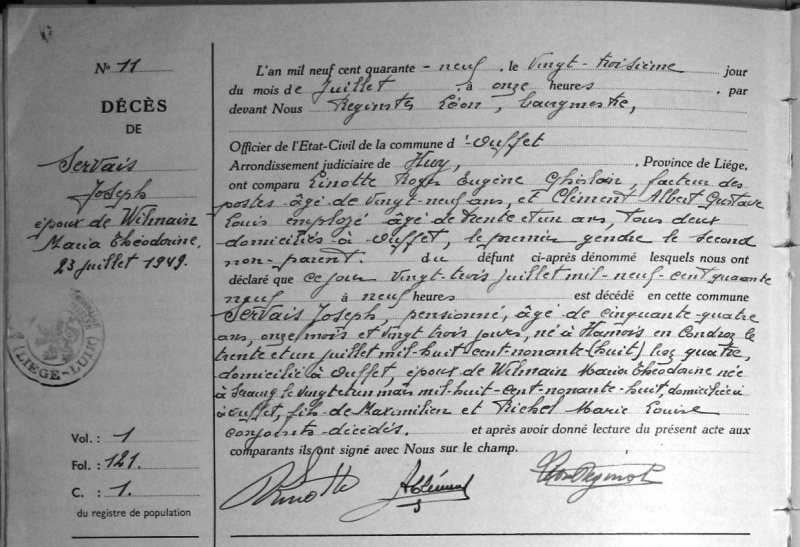 N° 11
DÉCÈS
DE
Servais
Joseph
époux de Wilmain
Maria Théodorine,
23 juillet 1949.
LIÈGE-LUIK
Vol. : 1
Fol. : 121.
C. : 1.
du registre de population
L'an mil neuf cent quarante - neuf, le vingt-troisième jour
du mois de juillet, à onze heures, par
devant Nous Reginster Léon, bourgmestre,
Officier de l'Etat-Civil de la commune d'Ouffet
Arrondissement judiciaire de Huy, Province de Liége,
ont comparu Linotte Roger Eugène Ghislain, facteur des
postes âgé de vingt-neuf ans, et Clément Albert Gustave
Louis employé âgé de trente et un ans, tous deux
domiciliés à Ouffet, le premier gendre le second
non-parent du défunt ci-après dénommé lesquels nous ont
déclaré que ce jour vingt-trois juillet mil-neuf-cent quarante
neuf à neuf heures est décédé en cette commune
Servais Joseph, pensionné, âgé de cinquante-quatre
ans, onze mois et vingt trois jours, né à Hamois en Condroz le
trente et un juillet mil-huit-cent-nonante-(huit) quatre,
domicilié à Ouffet, époux de Wilmain Maria Théodorine née
à Seraing le vingt et un mars mil-huit-cent-nonante-huit, domiciliée
à Ouffet, fils de Maximilien et Richel Marie Louise
conjoints décédés. et après avoir donné lecture du présent acte aux
comparants ils ont signé avec Nous sur le champ.
Linotte AClément